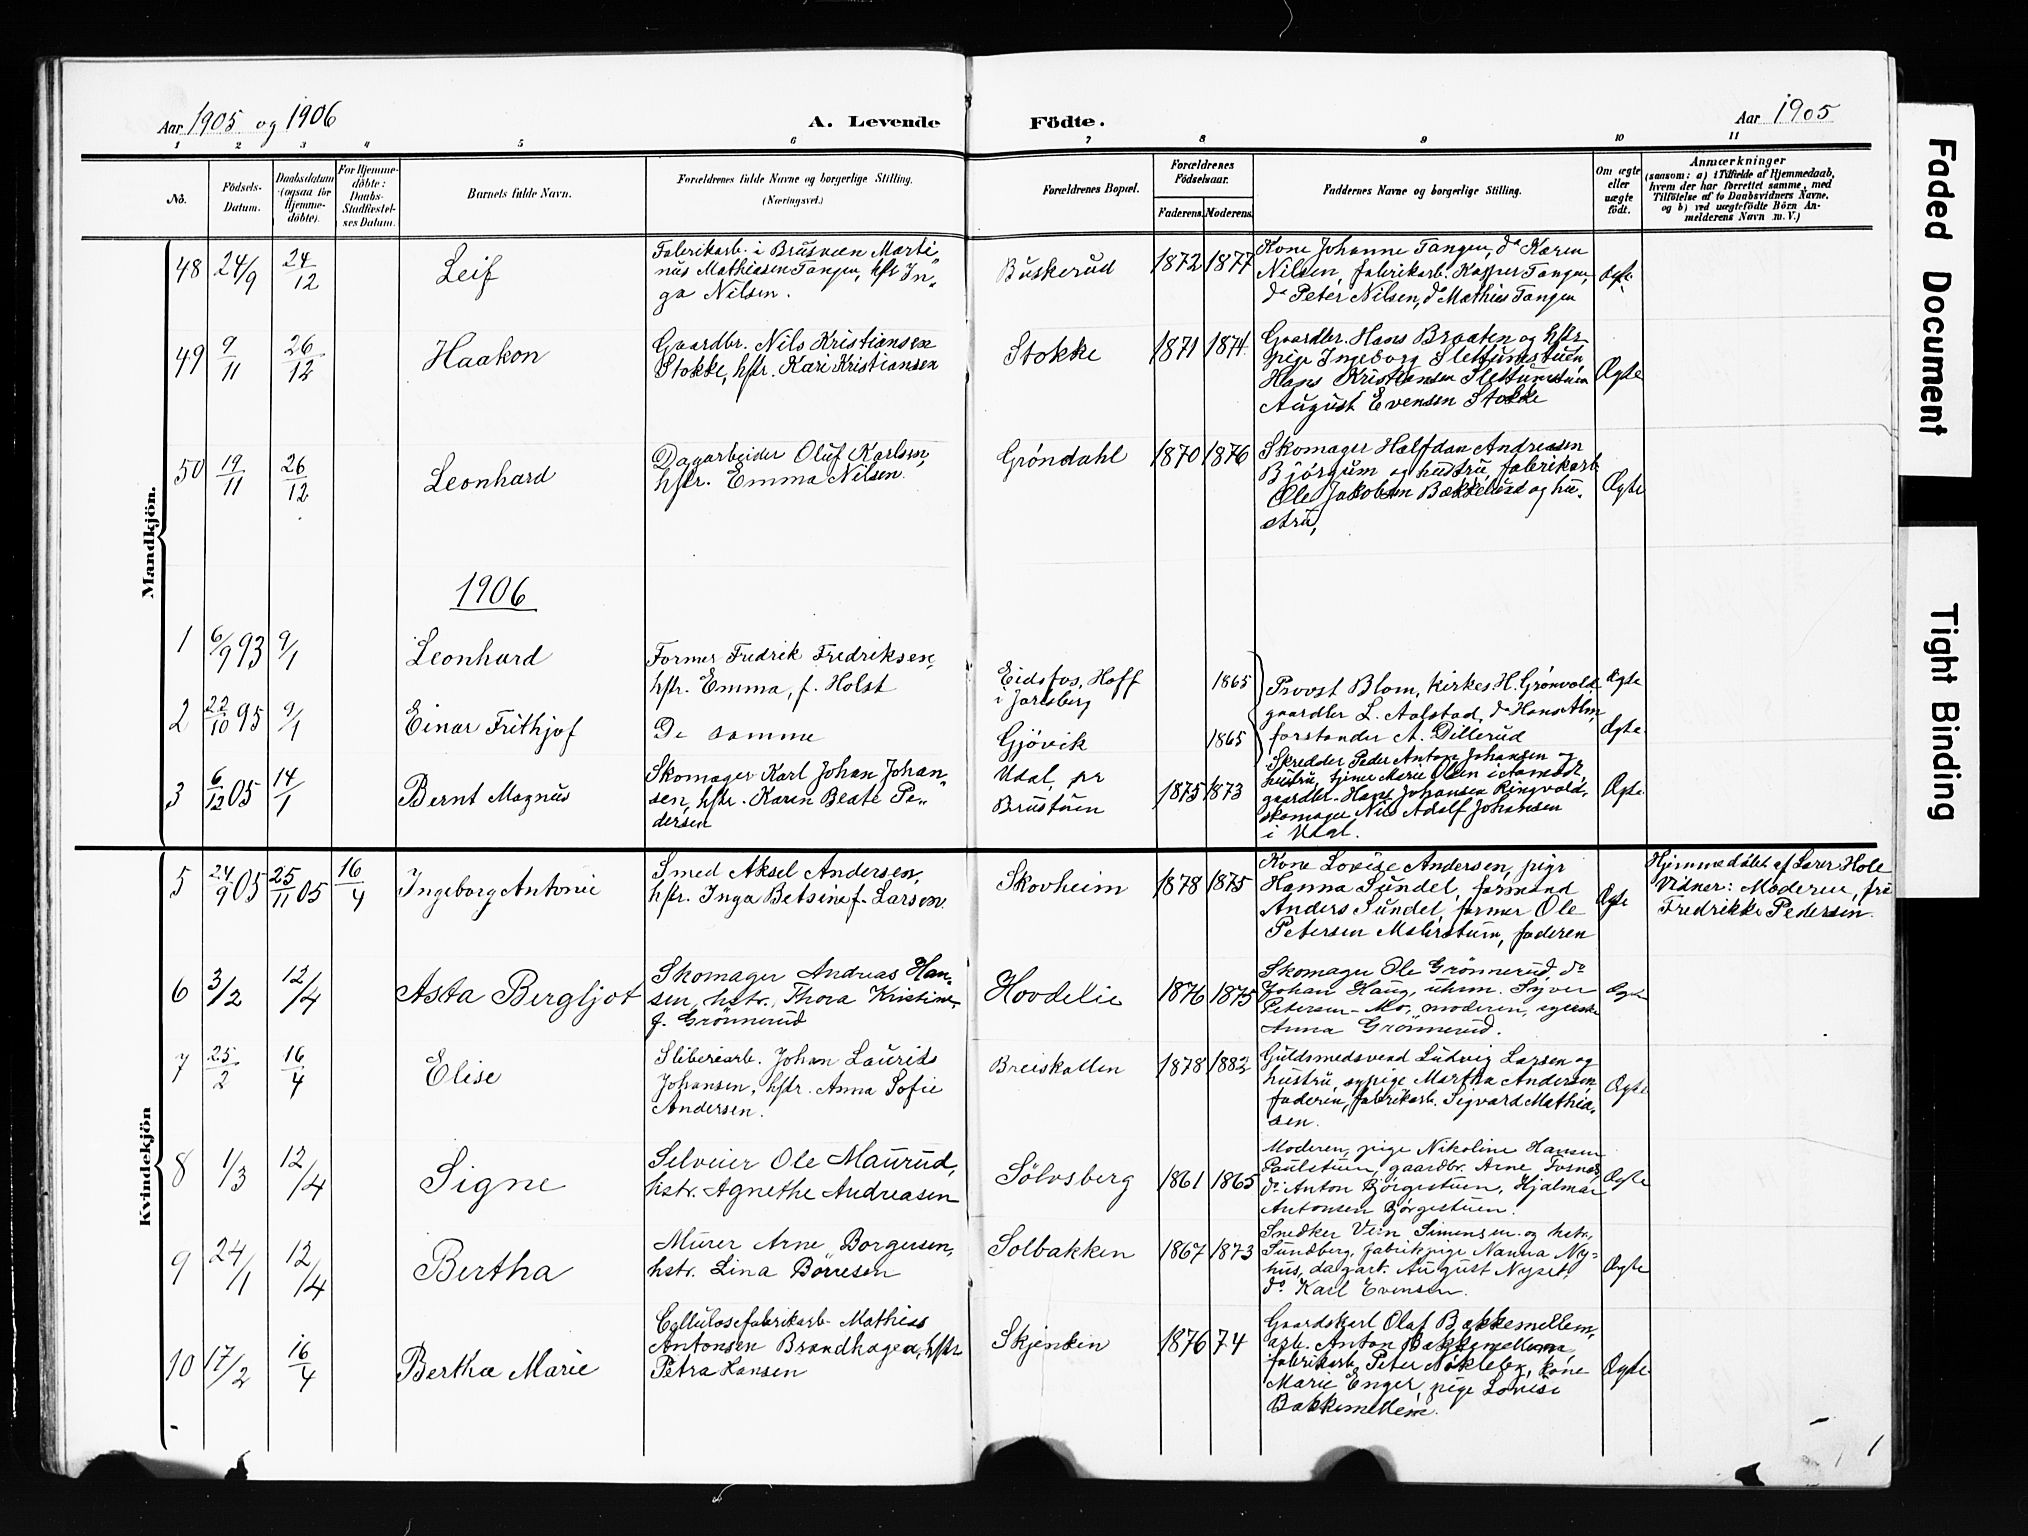 Aar 1905 og 1906
A. Levende
Födte.
Aar 1905
1 2 3 4 5 6 7 8 9 10 11
No.
Födsels-
Datum.
Daabsdatum
(ogsaa for
Hjemme-
döbte).
For Hjemme-
döbte:
Daabs-
Stadfæstel-
ses Datum.
Barnets fulde Navn.
Forældrenes fulde Navne og borgerlige Stilling.
(Næringsvei.)
Forældrenes Bopæl.
Forældrenes
Födselsaar.
Faderens. Moderens.
Faddernes Navne og borgerlige Stilling.
Om ægte
eller
uægte
födt.
Anmærkninger
(saasom: a) i Tilfælde af Hjemmedaab,
hvem der har forrettet samme, med
Tilföielse af to Daabsvidners Navne,
og b) ved uægtefödte Börn An-
melderens Navn m. V.)
Mandkjön.
48 24/9 24/12 Leif
Fabrikarb. i Brusveen Marti-
nus Mathiasen Tangen, hstr In-
ga Nilsen.
Buskerud 1872 1877
Kone Johanne Tangen, do Karen
Nilsen, fabrikarb. Kasper Tangen,
do Peter Nilsen, do Mathias Tangen
Ægte
49 9/11 26/12 Haakon
Gaardbr. Nils Kristiansen
Stokke, hstr. Kari Kristiansen
Stokke 1871 1874
Gaardbr. Hans Braaten og hstr
pige Ingeborg Slettumstuen
Hans Kristiansen Slettumstuen
August Evensen Stokke
Ægte
50 19/11 26/12 Leonhard
Dagarbeider Oluf Karlsen,
hstr. Emma Nilsen.
Gröndahl 1870 1876
Skomager Halfdan Andreasen
Björgum og hustru, fabrikarb
Ole Jakobsen Bækkelund og hu-
stru,
Ægte
1906
1 6/9 93 9/1 Leonhard
Former Fredrik Fredriksen,
hstr. Emma, f. Holst
Eidsfos, Hoff
i Jarlsberg
1865
Provst Blom, Kirkes. H. Grönvold
gaardbr L. Aalstad, do Hans Alm,
forstander A. Dillerud
Ægte
2 22/10 95 9/1 Einar Frithjof
De samme
Gjövik 1865
Ægte
3 6/12 05 14/1 Bernt Magnus
Skomager Karl Johan Johan-
sen, hstr. Karen Beate Pe-
dersen
Udal, pr
Brustuen
1875 1873
Skredder Peder Anton Johansen og
hustru, tjener Marie Olsen i Aamodt
gaardbr. Hans Johansen Ringvold,
skomager Nils Adolf Johansen
i Udal.
Ægte
Kvindekjön
5 24/9 05 25/11 05 16/4 Ingeborg Antonie
Smed Aksel Andersen,
hstr. Inga Betsine f. Larsen
Skovheim 1878 1875
Kone Lovise Andersen, pige
Hanna Sundel, formand
Anders Sundel, former Ole
Petersen Mælerstuen, faderen
Ægte
Hjemmedöbt af Lærer Hole
Vidner: Moderen, fru
Fredrikke Pedersen.
6 3/2 12/4 Asta Bergljot
Skomager Andreas Han-
sen, hstr. Thora Kristine
f. Grönnerud
Hovdelie 1876 1875
Skomager Ole Grönnerud, do
Johan Haug, uhrm. Syver
Petersen-Mo, moderen, syerske
Anna Grönnerud.
Ægte
7 25/2 16/4 Elise
Sliberiarb. Johan Laurids
Johansen, hstr. Anna Sofie
Andersen.
Breiskallen 1878 1882
Guldsmedsvend Ludvig Larsen og
hustru, sypige Martha Andersen,
faderen, fabrikarb. Sigvard Mathia-
sen.
Ægte
8 1/3 12/4 Signe
Selveier Ole Maurud,
hstr. Agnethe Andreasen
Sölvsberg 1861 1865
Moderen, pige Nikoline Hansen
Paulstuen, gaardbr. Arne Fosnæs,
do Anton Björgestuen, Hjalmar
Antonsen Björgestuen.
Ægte
9 24/1 12/4 Bertha
Murer Arne Borgersen,
hstr. Lina Börresen
Solbakken 1867 1873
Snedker Vein Simensen og hstr,
Sundberg, fabrikpige Nanna Ny-
hus, dagarb. August Nyset,
do. Karl Evensen.
Ægte
10 17/2 16/4 Bertha Marie
Cellulosefabrikarb. Mathias
Antonsen Brandhagen, hstr
Petra Hansen
Skjenken 1876 74
Gaardskarl Olaf Bækkemellem,
arb. Anton Bækkemellem,
fabrikarb. Peter Nökleby, kone
Marie Enger, pige Lovise
Bækkemellem.
Ægte
Faded Document
Tight Binding